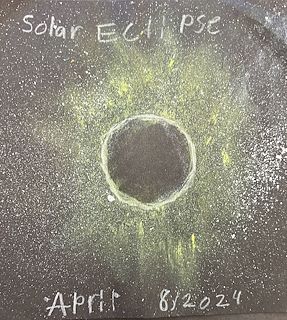 Solar Eclipse
April 8/2024